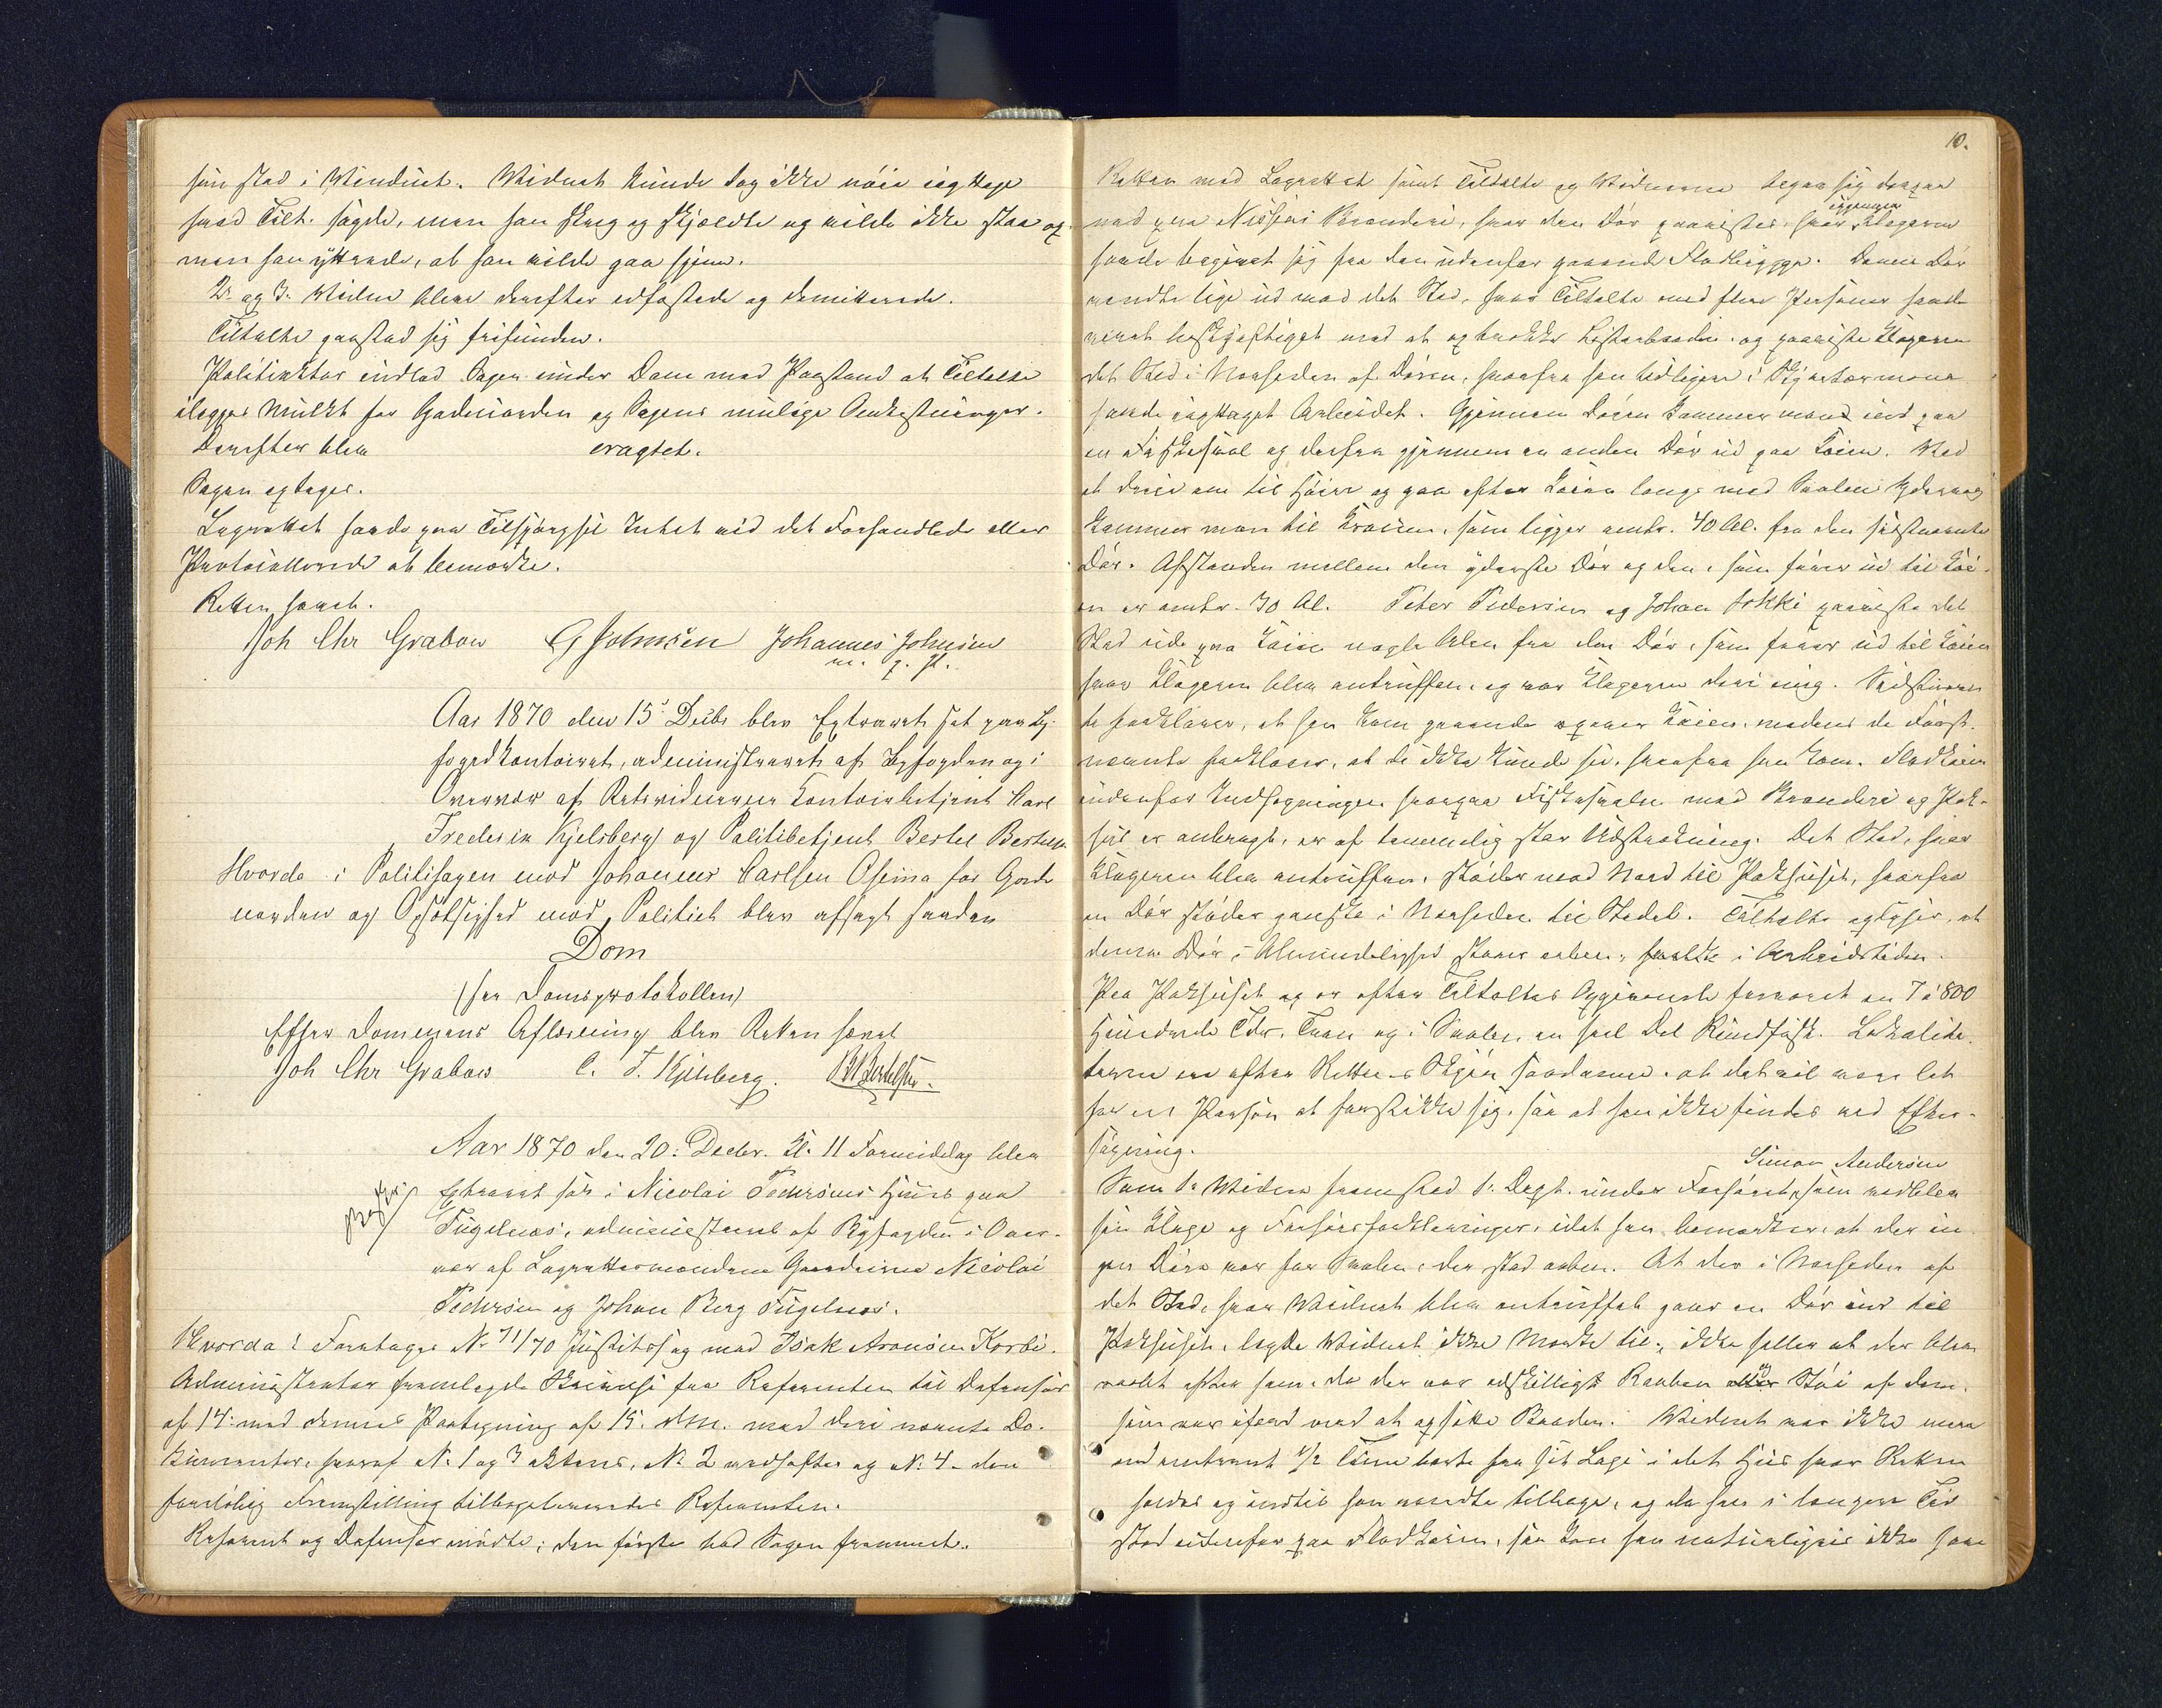 sin stod i Winduet. Widnet kunde dog ikke nøie iagttage
hvad Tilt. sagde, men han skreg og skjældte og vilde ikke staa op
men han yttrede, at han vilde gaa hjem.
2: og 3: Widne bleve derefter edfæstede og demitterede.
Tiltalte paastod sig frifunden.
Politiaktor indlod Sagen under Dom med Paastand at Tiltalte
ilægges Mulkt for Gadeuorden og Sagens mulige Omkostninger.
Derefter blev eragtet.
Sagen optages.
Lagrettet havde paa Tilspørgsel Intet ved det Forhandlede eller
Protocollerede at bemærke.
Retten hævet.
Joh Chr Grabow G Johnsen Johannes Johnsen
m. p. P.
Aar 1870 den 15: Decbr blev Extraret sat paa By-
fogedkontoiret, administreret af Byfogden og i
Overvær af Retsvidnerne Kontoirbetjent Carl
Frederik Kjelsberg og Politibetjent Bertel Bertelsen
Hvorda i Politisagen mod Johannes Carlsen for Gade-
uorden og Opsætsighed mod Politiet blev afsagt saadan
Dom
(see Domsprotokollen)
Efter Dommens Aflæsning blev Retten hævet
Joh Chr Grabow C. F. Kjelsberg. B. Bertelsen.
Aar 1870 den 20: Decbr. Kl. 11 Formiddag blev
Extraret sat i Nicolai Pedersens Huus paa
Fuglenæs, administreret af Byfogden i Over-
vær af Lagrettesmændene Gaardeierne Nicolai
Pedersen og Johan Berg Fuglenæs.
Hvorda i Foretages No 71/70 Justitssag mod Isak Aronsen Korbi.
Administrator fremlagde Skrivelse fra Referenten til Defensor
af 14: med dennes Paategning af 15: dMts. med deri nævnte Do-
kumenter, hvoraf No 1 og 3 akteres, No 2 vedhæftes og No 4 - den
foreløbig Fremstilling tilbageleveredes Referenten.
Referent og Defensor mødte; den første bad Sagen fremmet.
10.
Retten med Lagrettet samt Tiltalte og Widnerne begav sig derpaa
ned paa Nissens Brænderi, hvor den Dør paavistes, hvor igjennem Klageren
havde begivet sig fra den udenfor gaaende Flodbrygge. Denne Dør
vendte lige ud mod det Sted, hvor Tiltalte med flere Personer havde
været beskjæftiget med at optrække Lasteraadi og paaviste Klageren
det Sted i Nærheden af Døren, hvorfra han tidligere i
havde iagttaget Arbeidet. Gjennem Døren kommer man ind paa
en Fiskesval og derfra gjennem en anden Dør ud paa Kaien. Ved
at dreie om til Høire og gaa efter Kaien langs med Svalens Ydervæg
kommer man til Kranen, som ligger omtr. 40 Al. fra den sidstnævnte
Dør. Afstanden mellem den yderste Dør og den, som fører ud til Kai-
en er omtr. 30 Al. Peter Pedersen og Johan Iokki paaviste det
Sted ude paa Kaien nogle Alen fra den Dør, som fører ud til Kaien
hvor Klageren blev antruffen, og var Klageren deri enig. Sidstnævn-
te forklarer, at han kom gaaende opover Kaien, medens de Først-
nævnte forklarer, at de ikke kunde see, hvorfra han kom. Flodkaien
udenfor Indhegningen hvorpaa Fiskesvalen med Brænderi og Pak-
huus er anbragt, er af temmelig stor Udstrækning. Det Sted, hvor
Klageren blev antruffen, støder mod Nord til Pakhuset, hvorfra
en Dør støder ganske i Nærheden til Stedet. Tiltalte oplyser, at
denne Dør i Almindelighed staaer aaben, i Arbeidstiden.
Paa Pakhuset og er efter Tiltaltes Opgivende forvaret en 7 à 800
Hundrede Tdr. Tran og i Svalen en heel Del Rundfisk. Lokalite-
terne ere efter Rettens Skjøn saadanne, at det vil være let
for en Person at forstikke sig, saa at han ikke findes ved Efter-
søgning.
Simon Andersen
Som 1: Widne fremstod 1: Dept. under Forhøret, som vedblev
sin Klage og Forhørsforklaringer, idet han bemærker, at der in-
gen Døre var for Svalen; den stod aaben. At der i Nærheden af
det Sted, hvor Widnet blev antruffet gaar en Dør ind til
Pakhuset, lagde Widnet ikke Mærke til, ikke heller at der blev
raabt efter ham, da der var adskilligt Raaben og Støi af dem,
som var ifærd med at opsætte Baaden. Widnet var ikke mere
end omtrent 1/2 Time borte fra sit Logi i det Huus hvor Retten
holdes og indtil han vendte tilbage, og da han i længere Tid
stod udenfor paa Flodkaien, saa kan han naturligvis ikke have